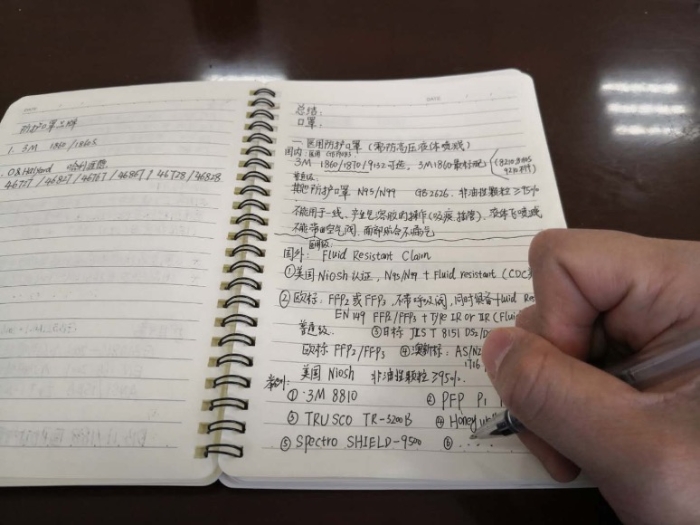 防护口罩品牌
1. 3M 1860/1860S
O&M Halyard
46727/46827/46767/46867/46728/46828
总结:
口罩:
一. 医用防护口罩(需防高压液体喷溅)
国内: 医用
3M 1860/1870/9132可选, 3M1860最标配
普通级:
其他防护口罩 N95/N99 GB2626. 非油性颗粒≥95%
不能用于一线、产生气溶胶的操作(吸痰、插管)、液体飞喷溅,
不能带出空气阀, 面部贴合不漏气
医用级:
国外: Fluid Resistant Claim
①美国Niosh认证, N95/N99 + Fluid resistant (CDC
②欧标. FFP2 或 FFP3, 不带呼吸阀, 同时具备 fluid Re
EN 149 FFP2/FFP3 + Type IR or IIR (Flui
普通级. ③日标 JIS T 8151 DS2/D
欧标 FFP2/FFP3 ④澳新标: AS/NZ
1716,
美国 Niosh 非油性颗粒≥95%.
举例:
①·3M 8810 ② PFP P1
③ TRUSCO TR-3200B ④ Honeyw
⑤ Spectro SHIELD-9500 ⑥ ....